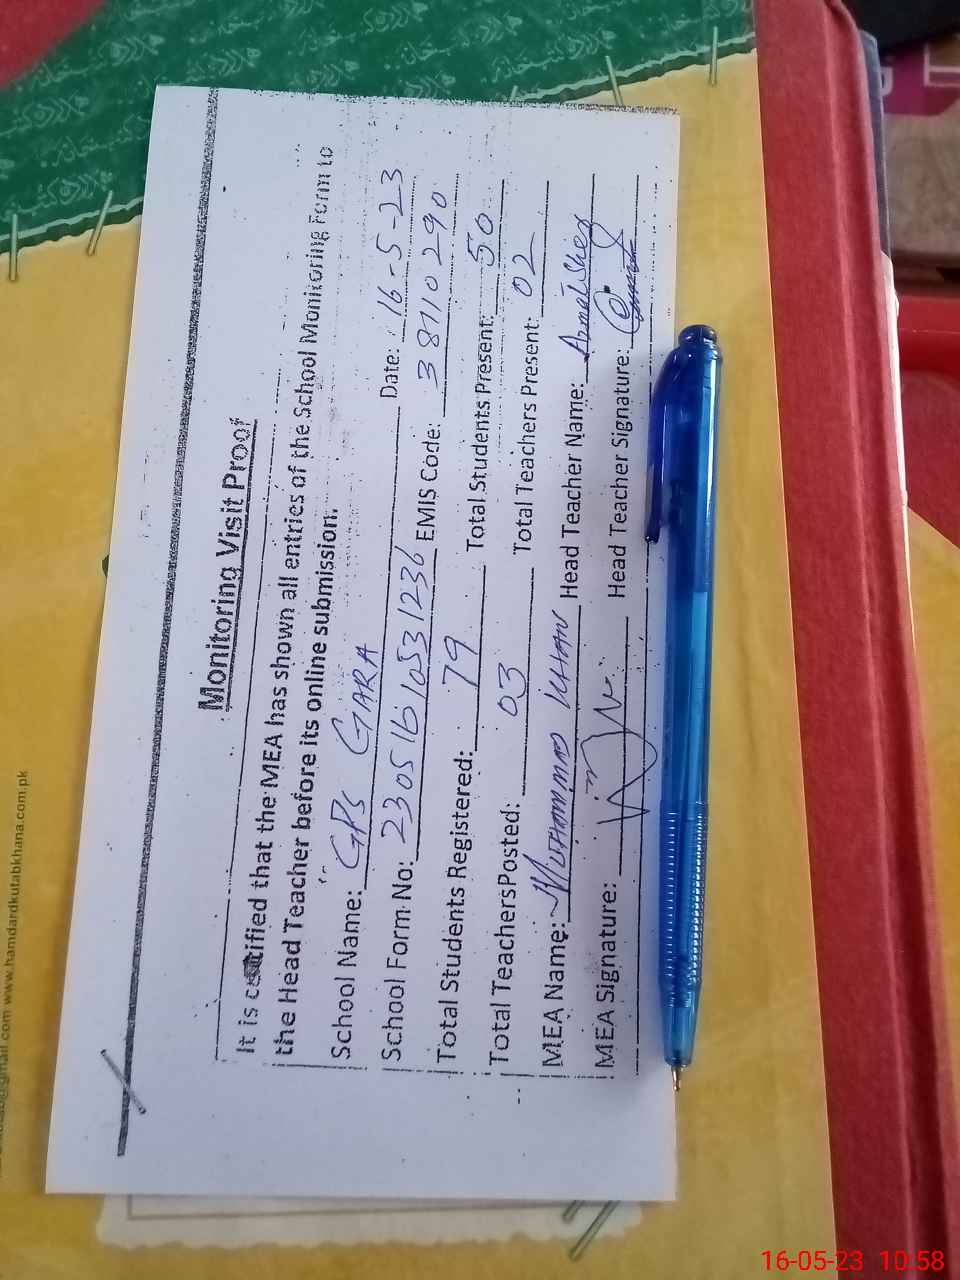 Monitoring Visit Proof
It is certified that the MEA has shown all entries of the School Monitoring Form to
the Head Teacher before its online submission.
School Name: GPS GARA Date: 16-5-23
School Form No: 23051610531236 EMIS Code: 38110290
Total Students Registered: 79 Total Students Present: 50
Total TeachersPosted: 03 Total Teachers Present: 02
MEA Name: MUHAMMAD KHAN Head Teacher Name:
MEA Signature: Head Teacher Signature:
@gmail.com www.hamdardkutabkhana.com.pk
16-05-23 10:58